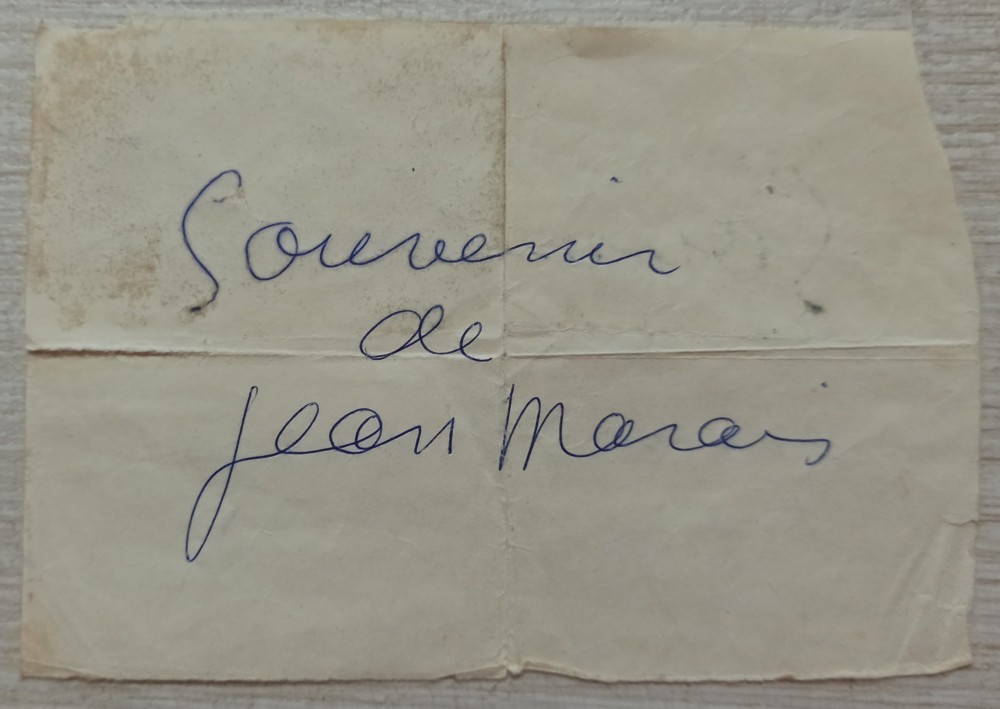 Souvenir
de
Jean Marais